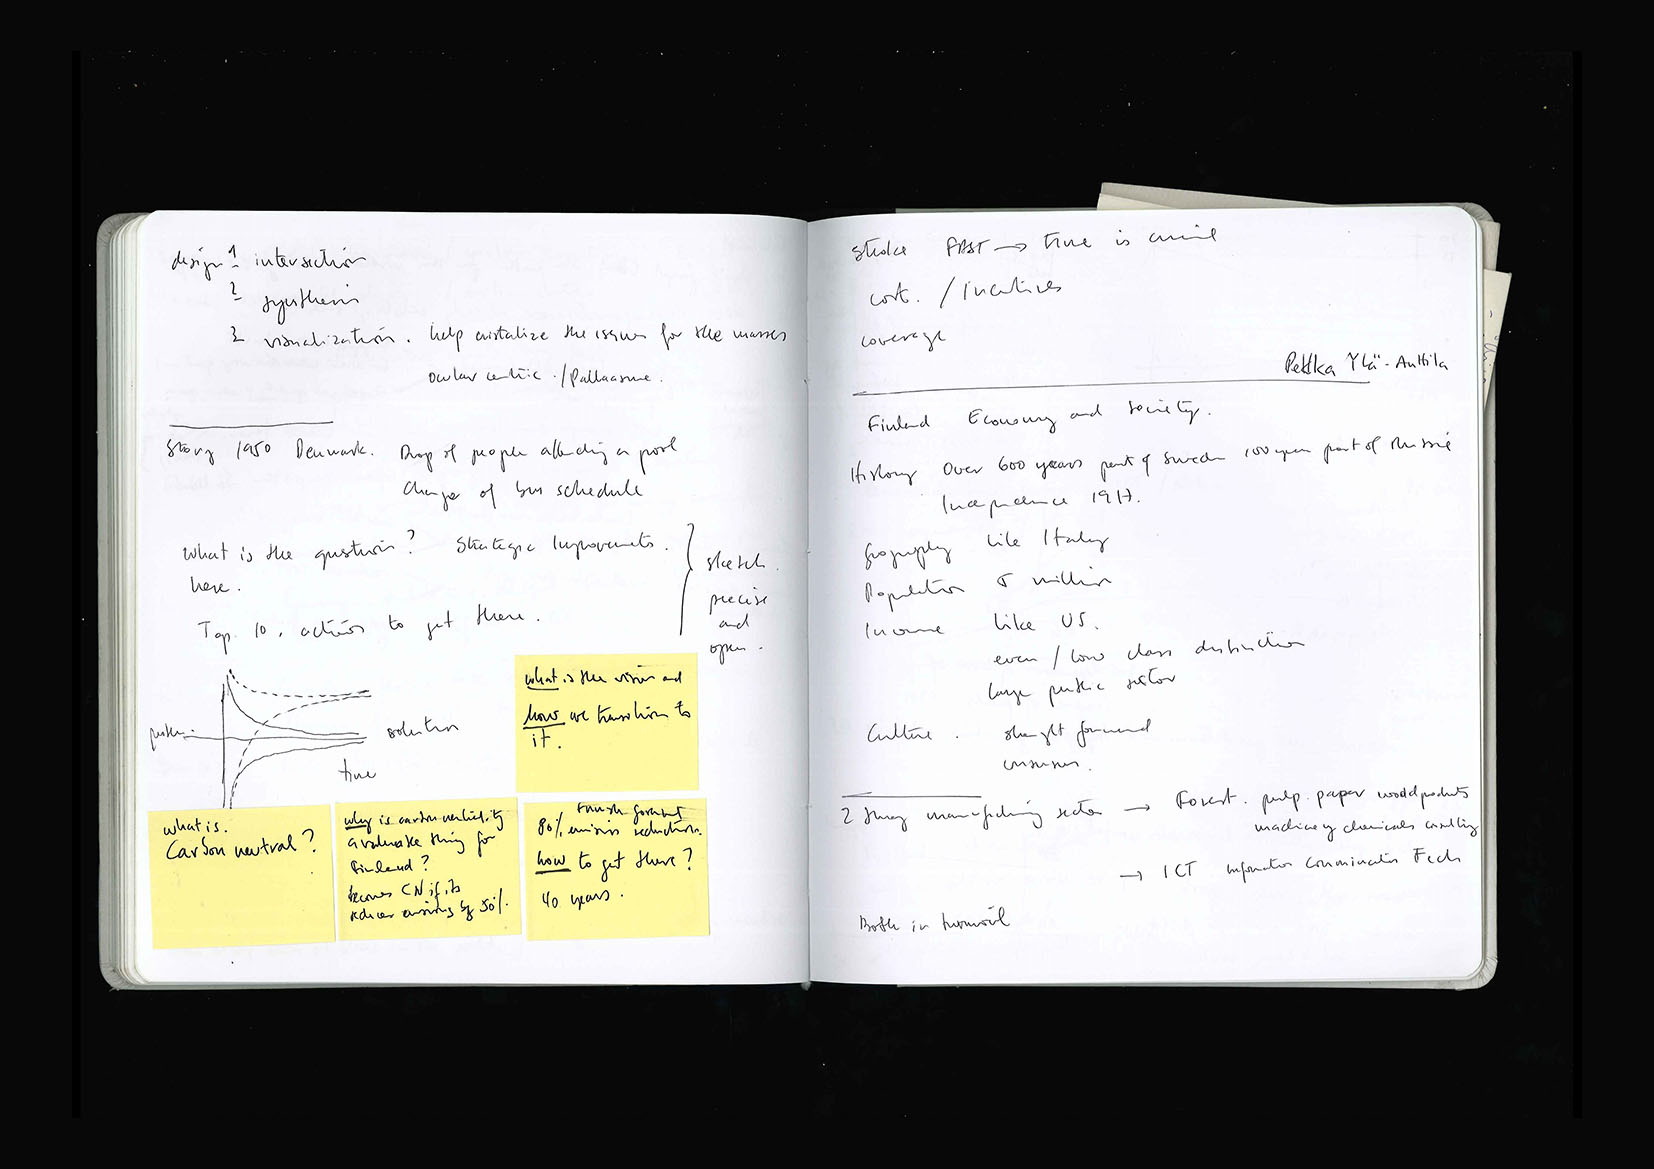 design 1 intersection
2 synthesis
3 visualization. help cristalize the issues for the masses
ocular centric. / Pallaasme.
Story 1950 Denmark. Drop of people attending a pool
change of bus schedule
What is the question? Strategic Improvements.
here.
Top 10, actions to get there.
sketch.
precise
and
open.
problem.
solution
time
what is the vision and
how we transition to
it.
what is.
Carbon neutral?
why is carbon neutrality
a valuable thing for
Finland?
becomes CN if its
reduces emissions by 50%.
Finnish government
80% emissions reduction.
how to get there?
40 years.
stroke FAST → time is
cost. / Incentives
coverage
Pekka Ylä-Anttila
Finland Economy and society.
History Over 600 years part of Sweden 100 year part of Russia
Independence 1917.
Geography like Italy
Population 5 million
Income like US.
even / low class distinction
large public sector
Culture. straight forward
consensus.
2 strong manufacturing sector → Forest. pulp. paper wood products
machinery chemicals
→ ICT information communication Tech
Both in turmoil